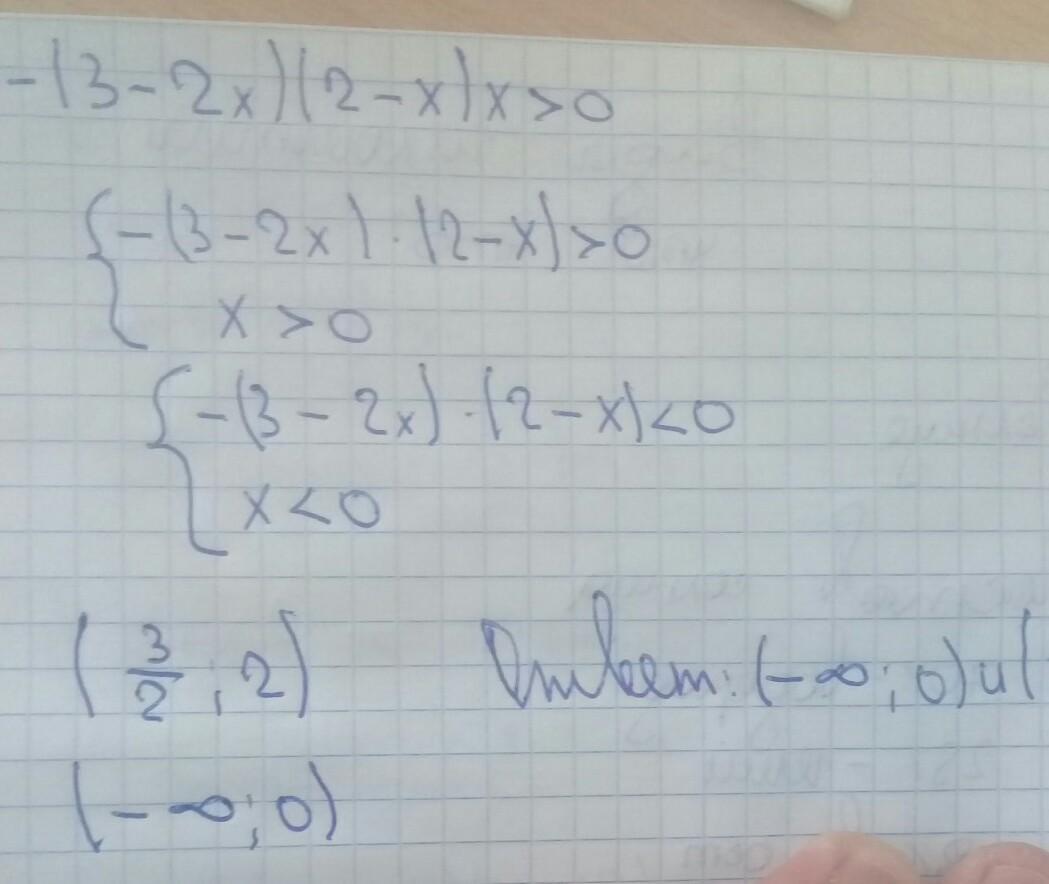 -(3-2x)(2-x)x>0
{-(3-2x)·(2-x)>0
x>0
{-(3-2x)·(2-x)<0
x<0
(3/2;2) Ответ: (-∞;0)u(
(-∞;0)